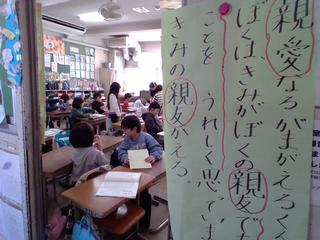 親愛なるがまがえるくん
ぼくは、きみがぼくの親友で
ことを うれしく思ていま
きみの親友かえる。